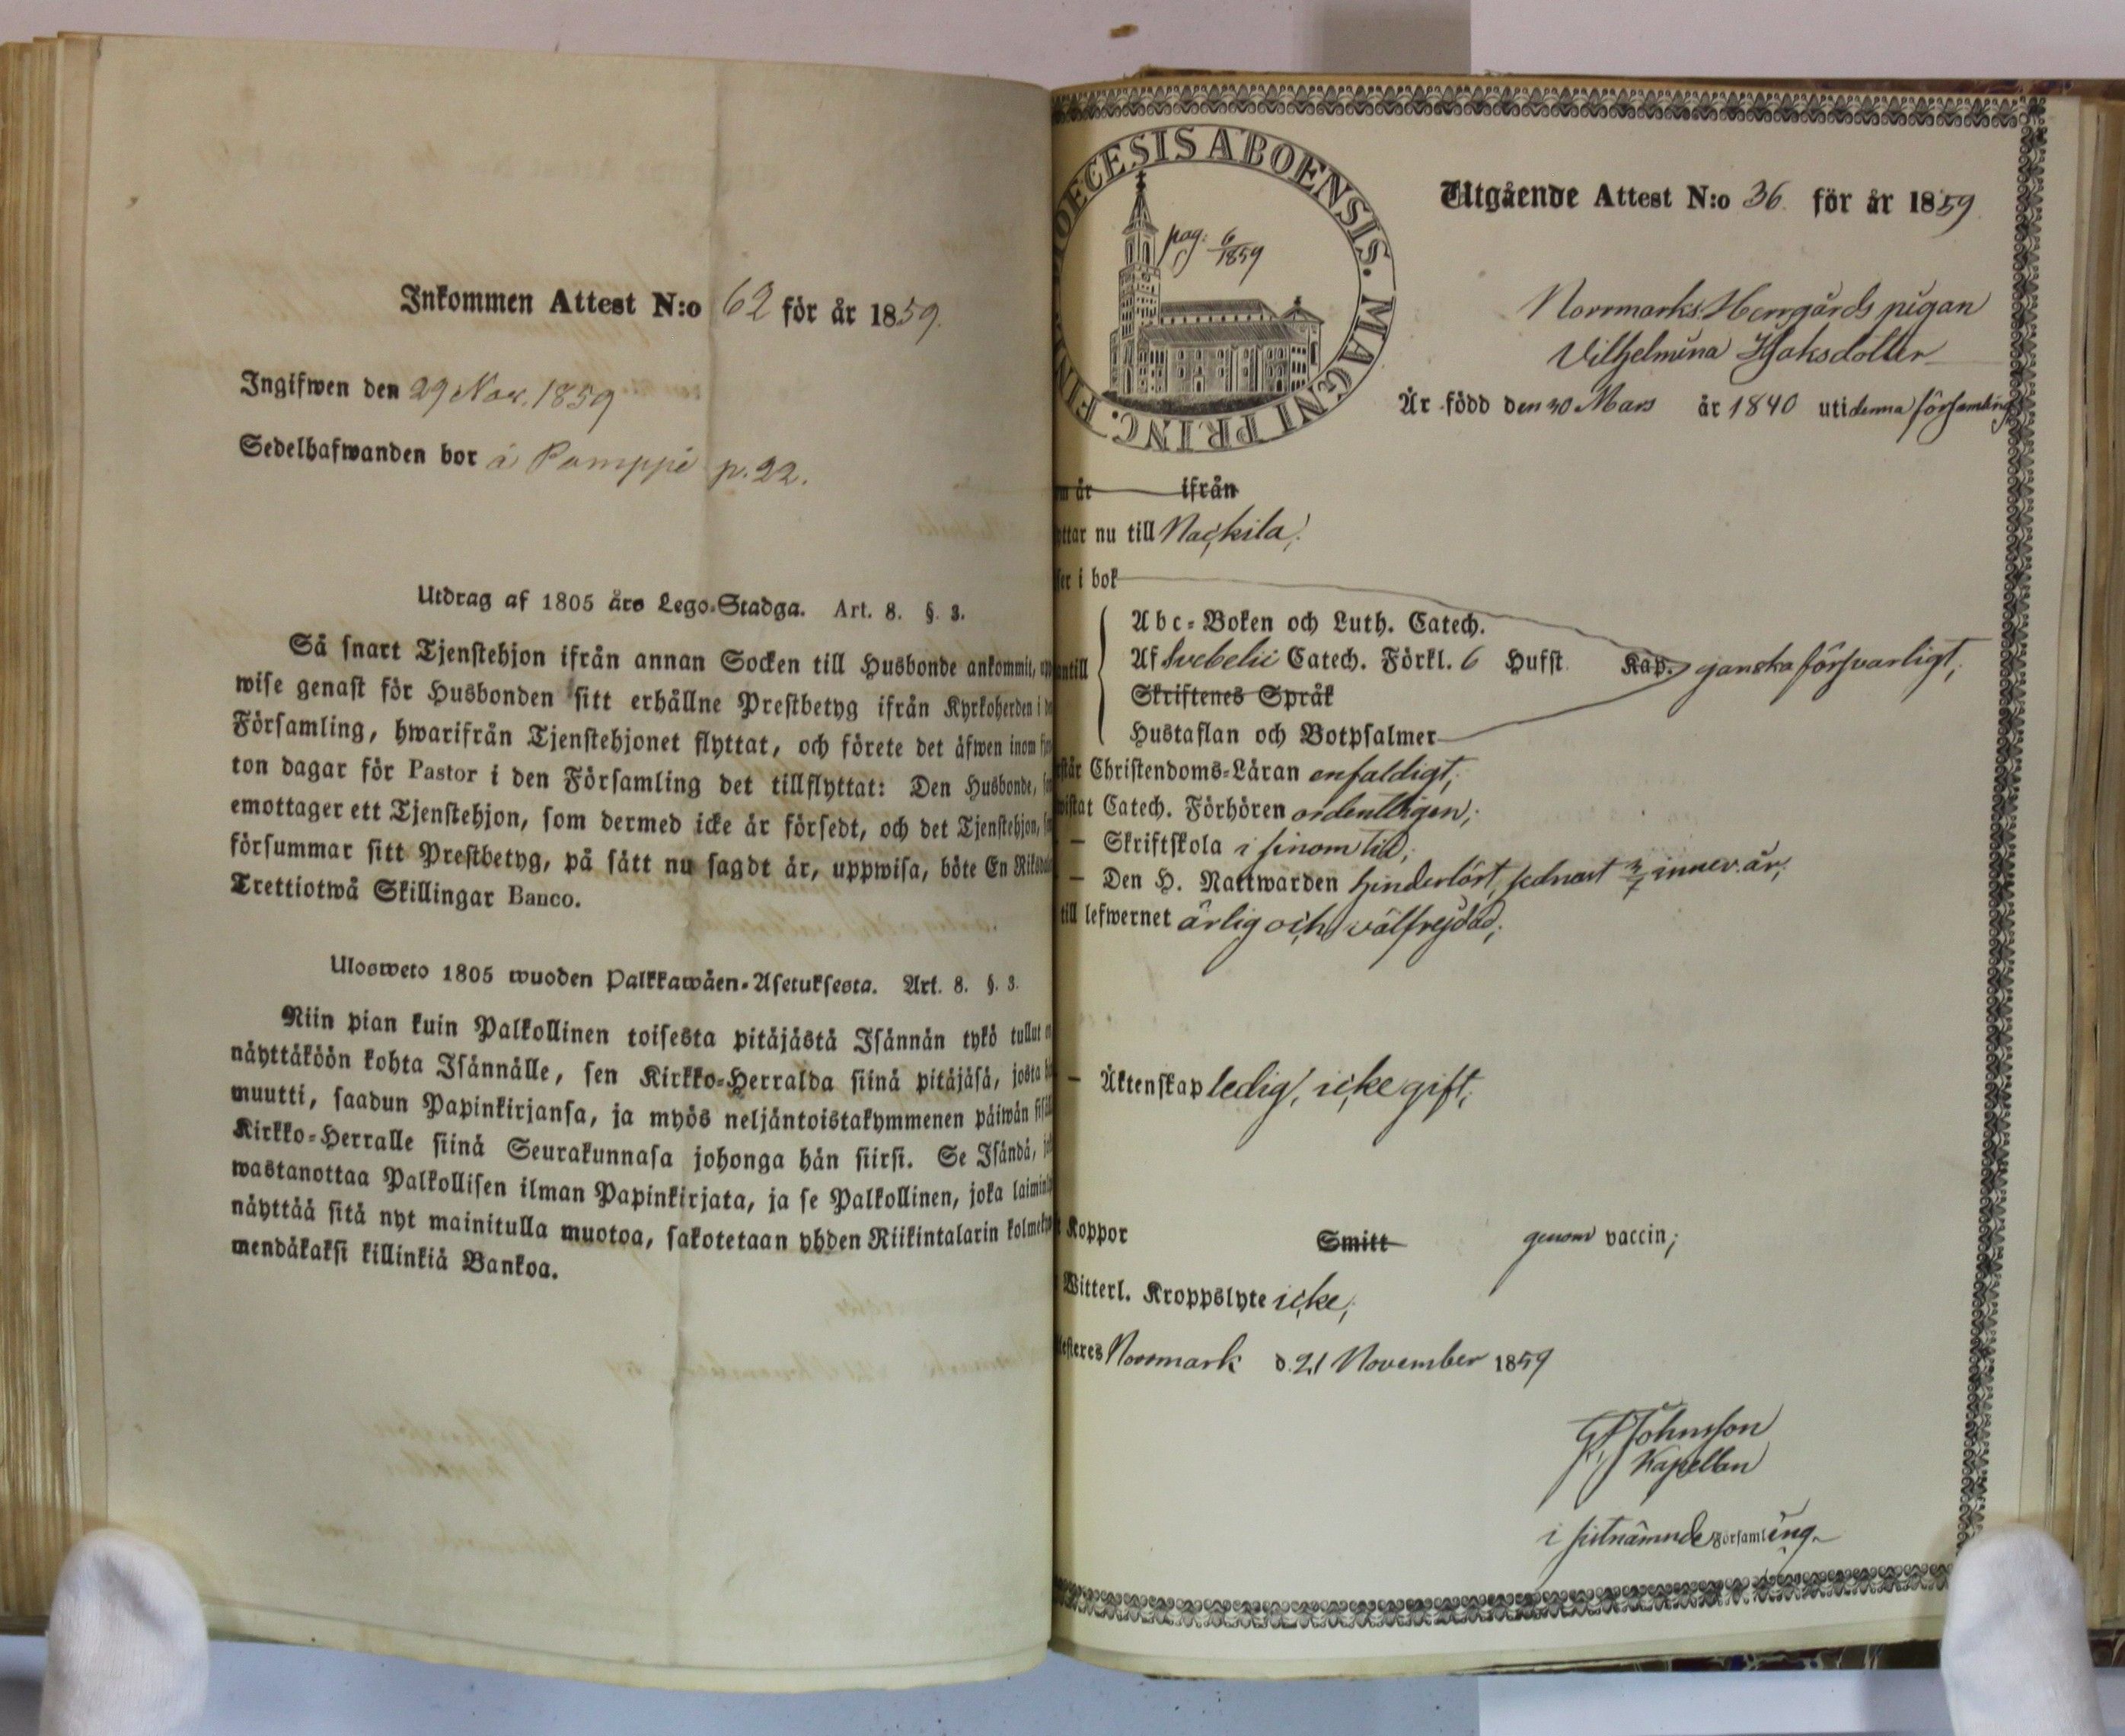 Inkommen Attest N:o 62 för år 1859.
Ingifwen den 29 Nov. 1859
Sedelhafwanden bor å Pamppi p. 22.
Utdrag af 1805 års Lego-Stadga. Art. 8. §. 3.
Så snart Tjenstehjon ifrån annan Socken till Husbonde ankommit, upp
wise genast för Husbonden sitt erhållne Prestbetyg ifrån Kyrkoherden i
Församling, hwarifrån Tjenstehjonet flyttat, och förete det äfwen inom
ton dagar för Pastor i den Församling det tillflyttat: Den Husbonde,
emottager ett Tjenstehjon, som dermed icke är försedt, och det Tjenstehjon,
försummar sitt Prestbetyg, på sätt nu sagdt är, uppwisa, böte En
Trettiotwå Skillingar Banco.
Ulosweto 1805 wuoden Palkkawäen-Asetuksesta. Art. 8. §. 3.
Niin pian kuin Palkollinen toisesta pitäjästä Isännän tykö tullut
näyttäköön kohta Isännälle, sen Kirkko-Herralda siinä pitäjäsä, josta
muutti, saadun Papinkirjansa, ja myös neljäntoistakymmenen päiwän
Kirkko-Herralle siinä Seurakunnasa johonga hän siirsi. Se Isändä,
wastanottaa Palkollisen ilman Papinkirjata, ja se Palkollinen, joka
näyttää sitä nyt mainitulla muotoa, sakotetaan yhden Riikintalarin
mendäkaksi killinkiä Bankoa.
DIOECESIS ABOENSIS. MAGNI PRINC. FINL.
pag: 6/1859
Utgående Attest N:o 36. för år 1859.
Norrmarks Herrgårds pigan
Vilhelmina Isaksdotter
Är född den 30 Mars år 1840 uti denna församling
år ifrån
ttar nu till Nackila;
i bok
Abc-Boken och Luth. Catech.
antill Af Svebelii Catech. Förkl. 6 Hufst. Kap. ganska försvarligt;
Skriftenes Språk
Hustaflan och Botpsalmer
står Christendoms-Läran enfaldigt;
wistat Catech. Förhören ordentligen;
— Skriftskola i sinom tid;
— Den H. Nattwarden hinderlöst, sednast 3/7 innev. år;
till lefwernet ärlig och välfrejdad;
— Äktenskap ledig, icke gift;
Koppor Smitt genom vaccin;
Witterl. Kroppslyte icke;
testeres Norrmark d. 21 November 1859
Johnsson
Kapellan
i sistnämnde Församling.